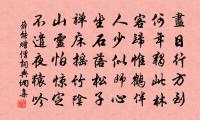 盡日行方到
何年獨此林
客歸惟鶴伴
人少似師心
坐石落松子
禪床搖竹陰
山靈怕驚定
不遣夜猿吟
薛能贈僧詞典網集